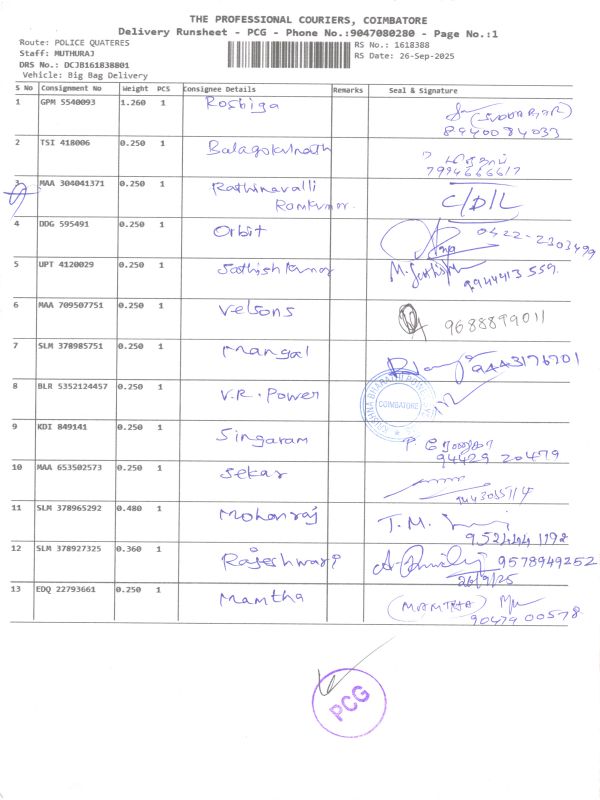 THE PROFESSIONAL COURIERS, COIMBATORE
Delivery Runsheet - PCG - Phone No.:9047080280 - Page No.:1
Route: POLICE QUATERES
RS No.: 1618388
Staff: MUTHURAJ
RS Date: 26-Sep-2025
DRS No.: DCJB161838801
Vehicle: Big Bag Delivery
S No Consignment No Weight PCS Consignee Details Remarks Seal & Signature
1 GPM 5540093 1.260 1 Rosbiga
8940084033
2 TSI 418006 0.250 1 Balagokulnath
7994666617
3 MAA 304041371 0.250 1 Rathinavalli
Ramkumar. C/D/L
4 DDG 595491 0.250 1 Orbit 0422-2303499
5 UPT 4120029 0.250 1 Sathish Kumar M. Sathish
9944413559
6 MAA 709507751 0.250 1 Velsons 9688899011
7 SLM 378985751 0.250 1 Mangal 9443176201
8 BLR 5352124457 0.250 1 V.R. Power
COIMBATORE
9 KDI 849141 0.250 1 Singaram
94429 20479
10 MAA 653502573 0.250 1 Sekar
11 SLM 378965292 0.480 1 Mohanraj T. M.
9524441198
12 SLM 378927325 0.360 1 Rajeshwari 9578949252
26/9/25
13 EDQ 22793661 0.250 1 Mamtha (MAMTHA)
90479 00578
PCG